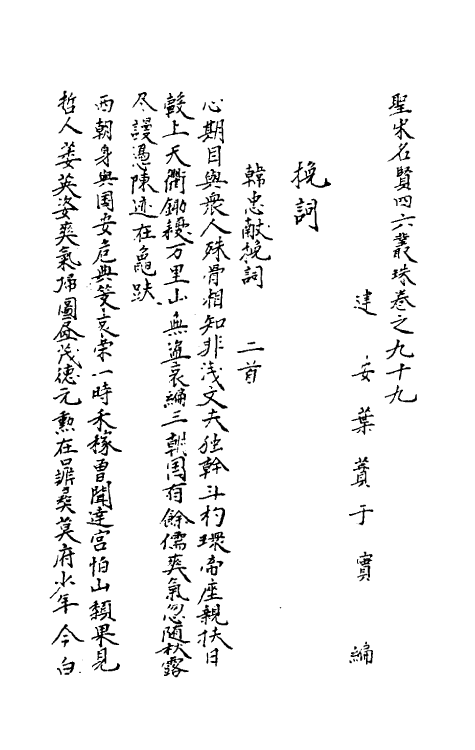 聖宋名賢四六叢珠卷之九十九
建安葉蕡子實編
挽詞
韓忠献挽詞 二首
心期目與衆人殊骨相知非浅丈夫独幹斗杓環帝座親扶日
轂上天衢鋤耰万里山無盜衮繡三朝国有餘儒爽氣忽随秋露
尽謾憑陳迹在龜趺
西朝身與国安危典䇿哀荣一時禾稼曽聞達官怕山頹果見
哲人萎英姿爽氣歸圖畫茂德元勳在鼎彝莫府少年今白